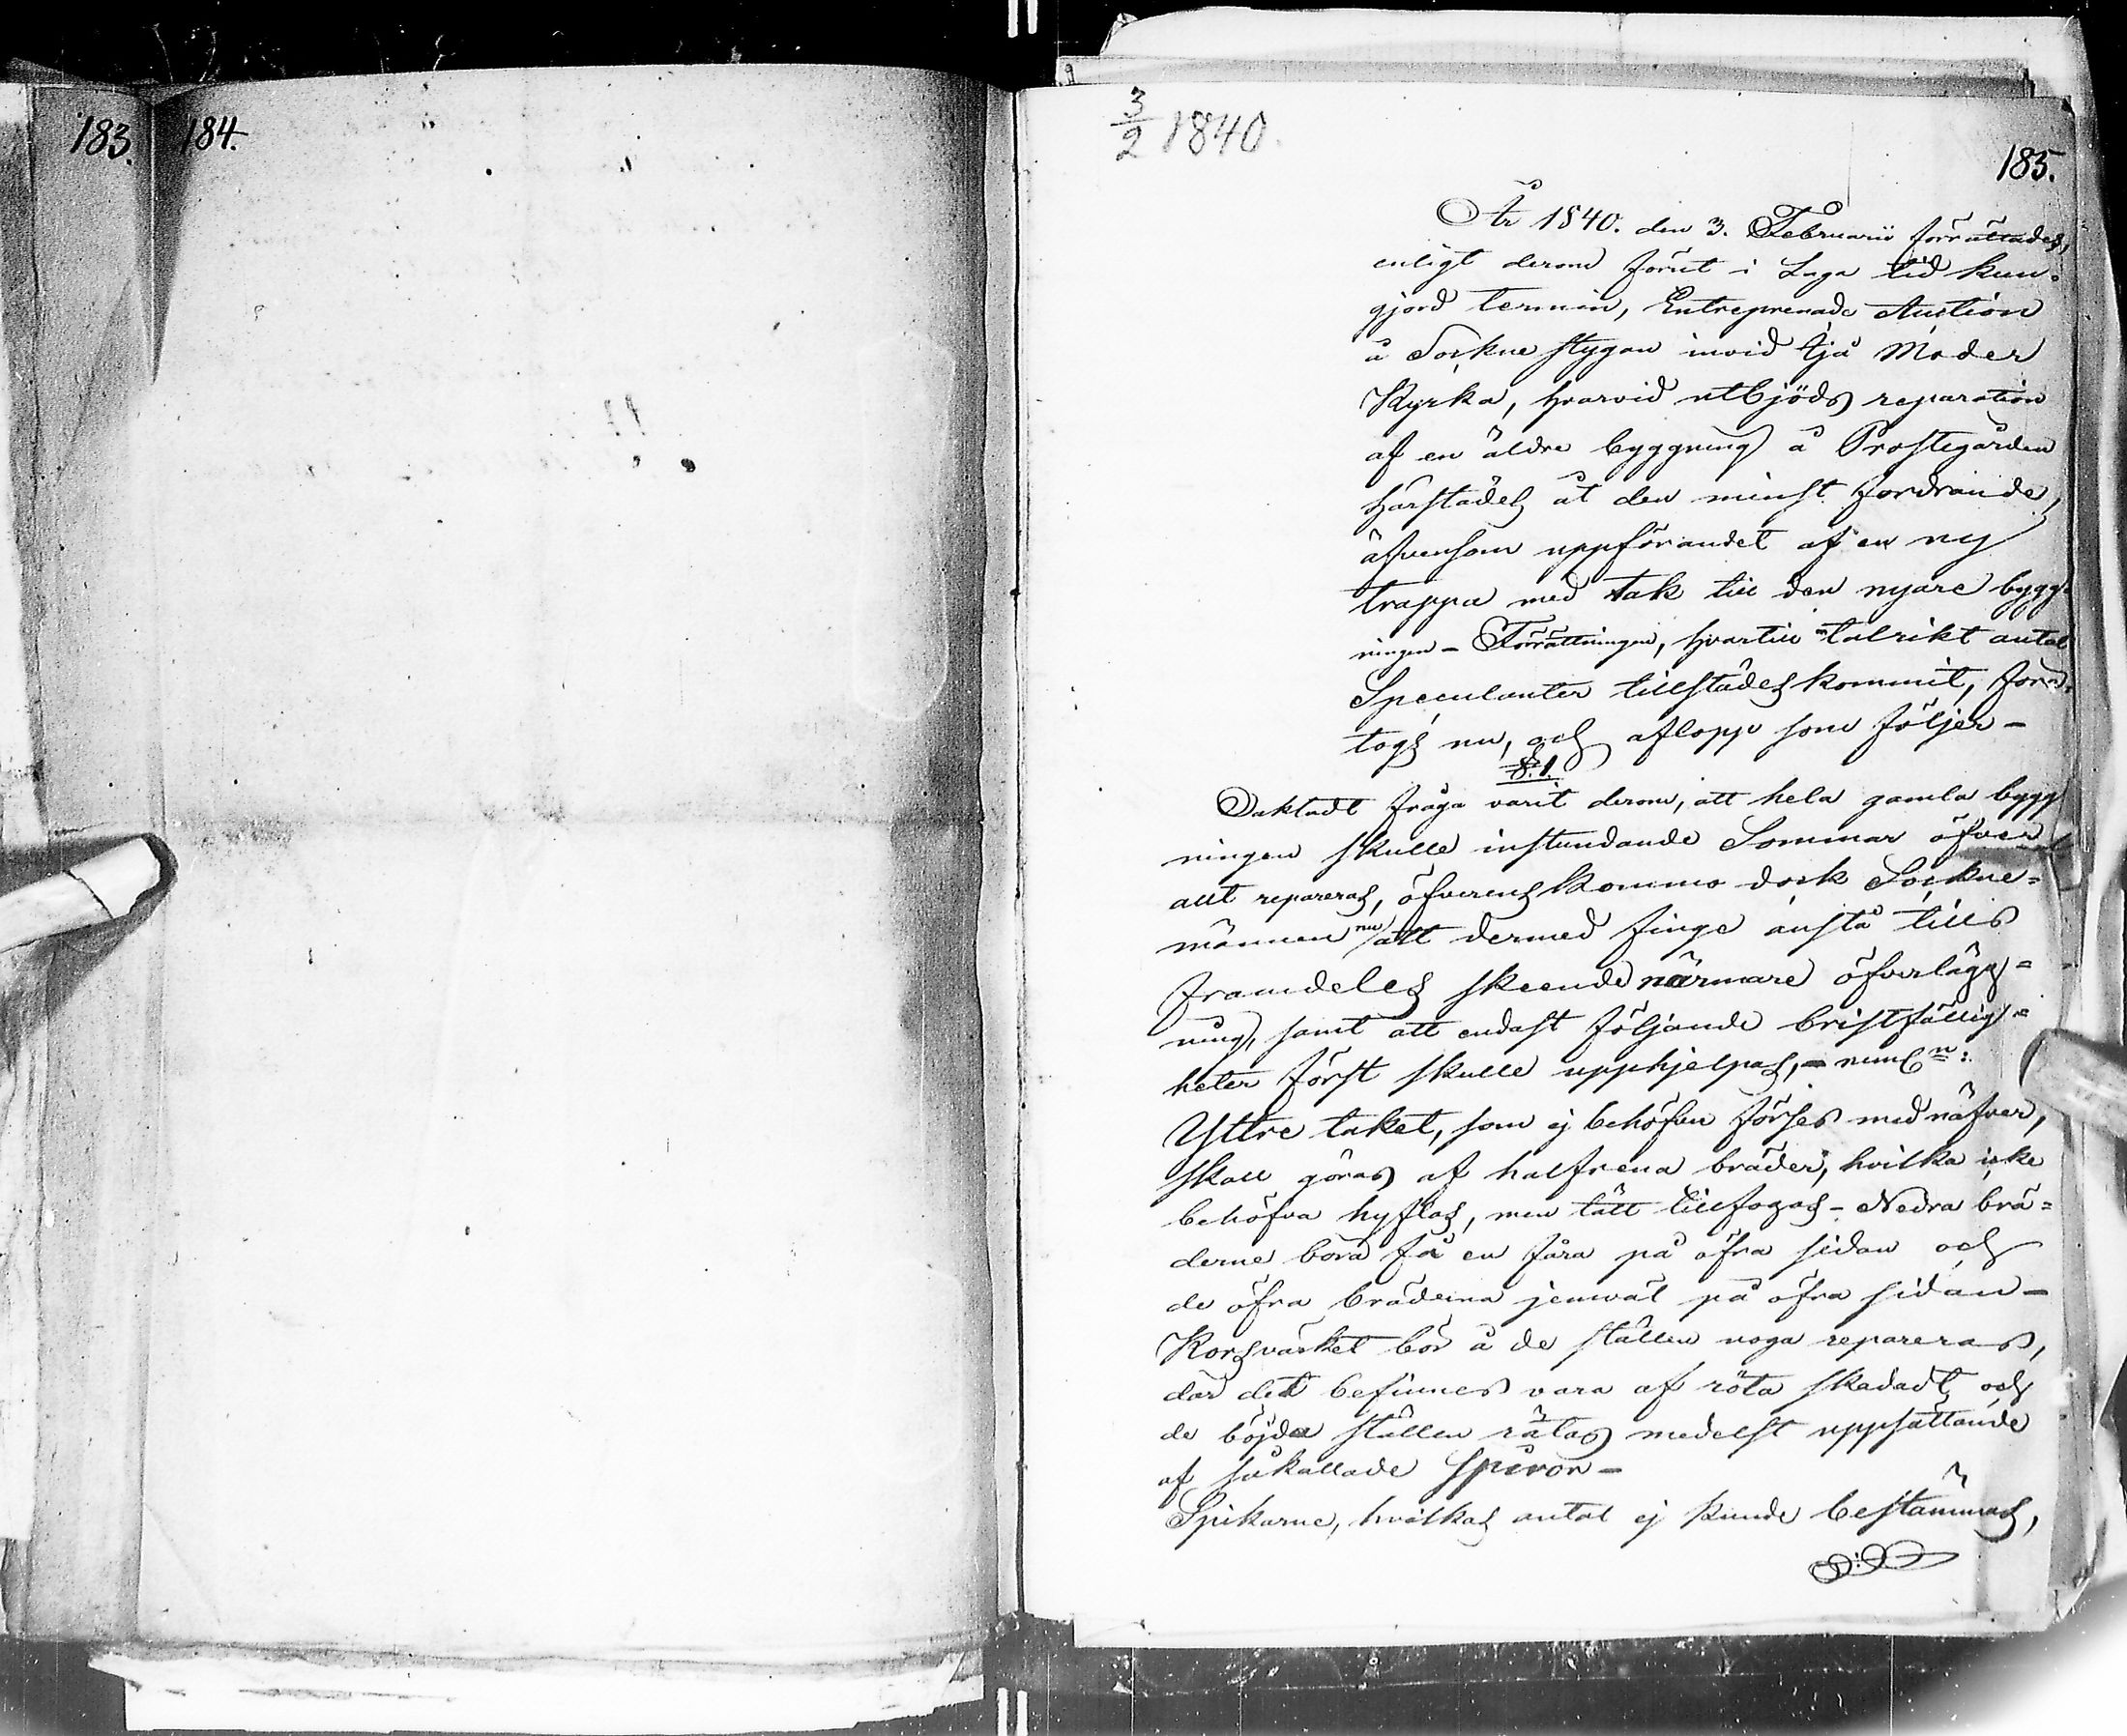 183.
184.
3/2 1840.
185.
År 1840. den 3. Februarii förrättades,
enligt derom förut i Laga tid kun-
gjord termin, Entreprenade Auction
å Sockne stugan invid Ijå Moder
Kyrka, hvarvid utbjöds reparation
af en äldre byggning å Prostegården
härstädes åt den minst fordrande,
äfvensom uppförandet af en ny
trappa med tak till den nyare bygg-
ningen - Förrättningen, hvartill talrikt antal
Speculanter tillstädeskommit, före-
togs nu, och aflopp som följer -
§. 1.
Oaktadt fråga varit derom, att hela gamla bygg
ningen skulle instundande Sommar öfver
allt repareras, öfverenskommo dock Sockne=
männen nu att dermed finge anstå tills
framdeles skeende närmare öfverlägg=
ning, samt att endast följande bristfällig=
heter först skulle upphjelpas, - neml:n:
Yttre taket, som ej behöfver förses med näfver,
skall göras af halfrena bräder, hvilka icke
behöfva hyflas, men tätt tillfogas - Nedra brä=
derne böra få en fåra på öfra sidan och
de öfra bräderna jemväl på öfra sidan -
Korsvärket bör å de ställen noga repareras,
där det befinnes vara af röta skadadt, och
de böjda ställen rätas medelst uppsättande
af såkallade spiror -
Spikarne, hvilkas antal ej kunde bestämmas,